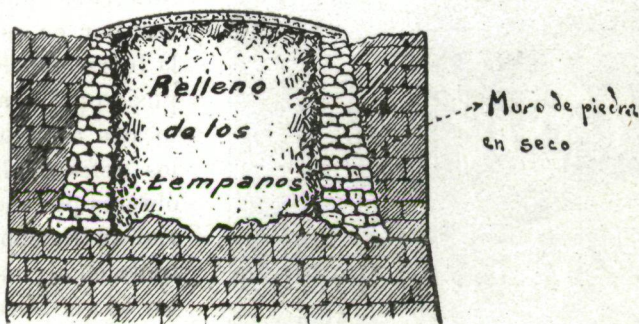 Relleno
de los
tempanos
Muro de piedra
en seco